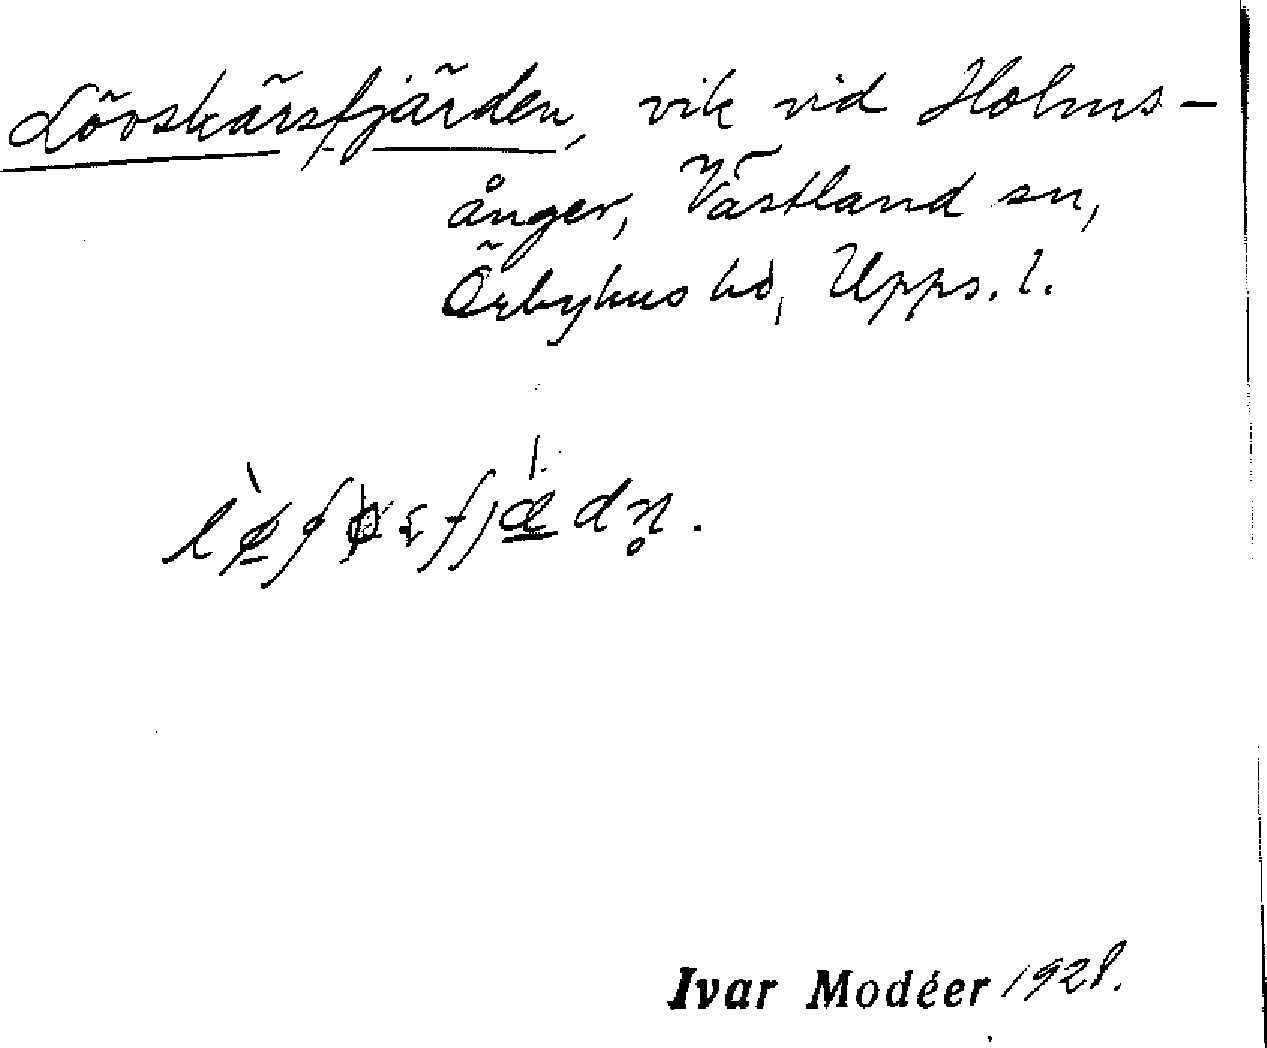 Lövskärsfjärden, vik vid Holms-
ånger, Västland sn,
Örbyhus hd, Upps. l.
Ivar Modéer 1928.